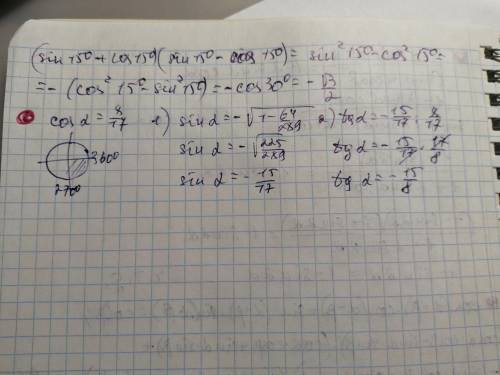 (sin 15° + cos 15°)(sin 15° - cos 15°) = sin² 15° - cos² 15° =
= -(cos² 15° - sin² 15°) = -cos 30° = -√3/2
cos α = 8/17 1) sin α = -√(1 - 64/289) 2) tg α = -15/17 : 8/17
360° sin α = -√(225/289) tg α = -15/17 · 17/8
270° sin α = -15/17 tg α = -15/8